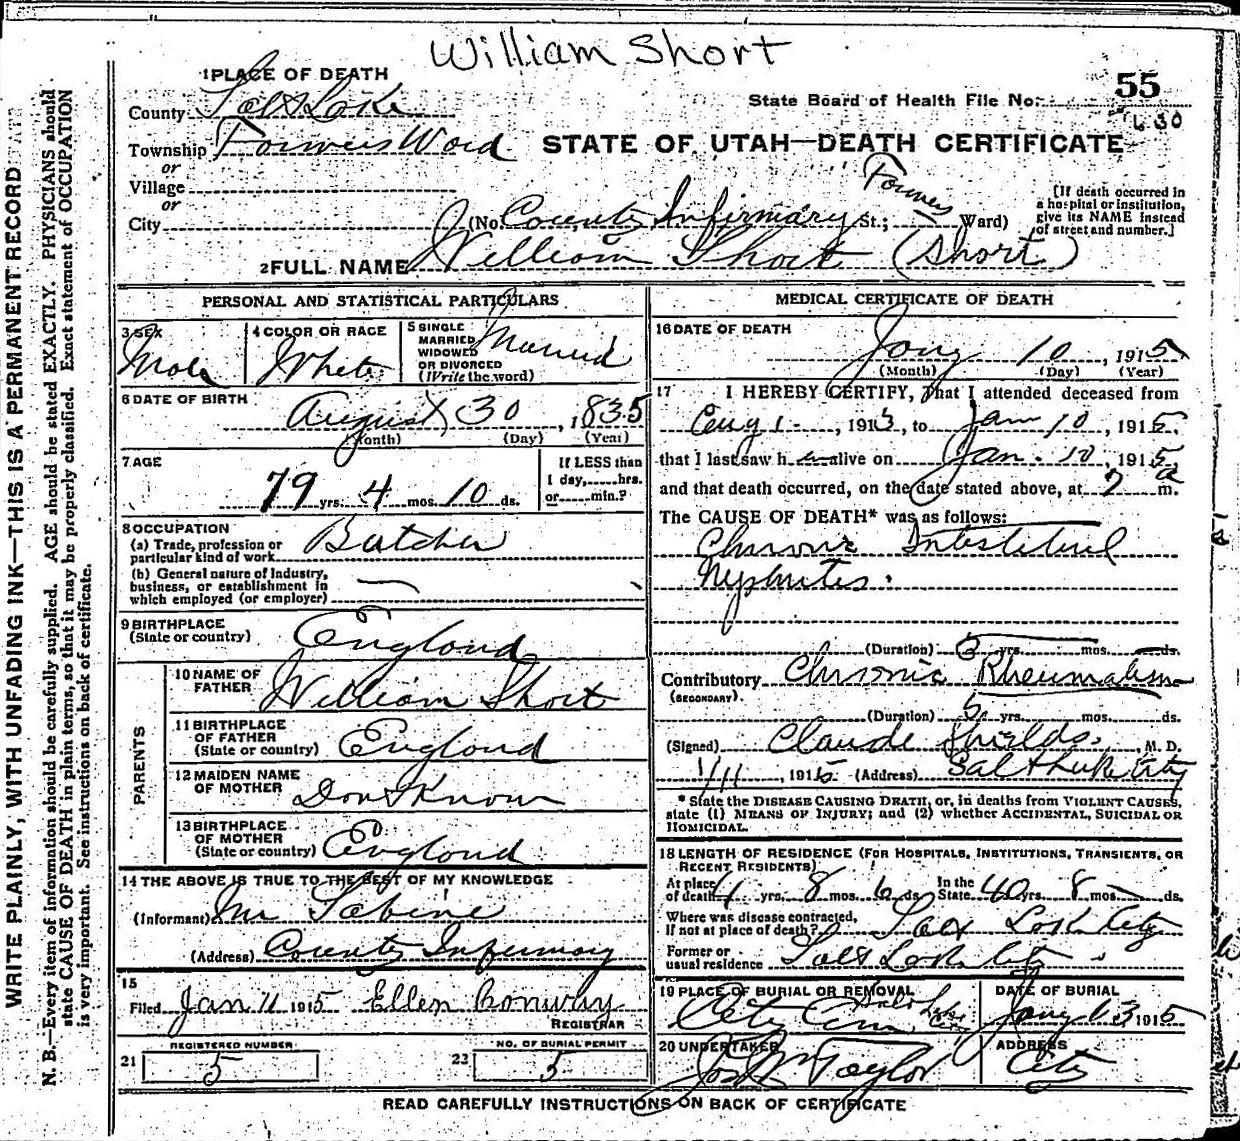 William Short
1 PLACE OF DEATH
County Salt Lake
State Board of Health File No. 55
Township Farmers Ward
STATE OF UTAH—DEATH CERTIFICATE
or
Village
or
City (No. County Infirmary St.; Farmers Ward)
[If death occurred in
a hospital or institution,
give its NAME instead
of street and number.]
2 FULL NAME William Short (Short)
PERSONAL AND STATISTICAL PARTICULARS
3 SEX
Male
4 COLOR OR RACE
White
5 SINGLE
MARRIED
WIDOWED
OR DIVORCED
(Write the word)
Married
6 DATE OF BIRTH
August 30, 1835
(Month) (Day) (Year)
7 AGE
79 yrs. 4 mos. 10 ds.
If LESS than
1 day, hrs.
or min.?
8 OCCUPATION
(a) Trade, profession or
particular kind of work Butcher
(b) General nature of Industry,
business, or establishment in
which employed (or employer)
9 BIRTHPLACE
(State or country) England
PARENTS
10 NAME OF
FATHER William Short
11 BIRTHPLACE
OF FATHER
(State or country) England
12 MAIDEN NAME
OF MOTHER Dont Know
13 BIRTHPLACE
OF MOTHER
(State or country) England
14 THE ABOVE IS TRUE TO THE BEST OF MY KNOWLEDGE
(Informant) Mr Sabine
(Address) County Infirmary
15
Filed Jan 11 1915 Ellen Conway
REGISTRAR
REGISTERED NUMBER
21 5
NO. OF BURIAL PERMIT
5
MEDICAL CERTIFICATE OF DEATH
16 DATE OF DEATH
Jany 10, 1915
(Month) (Day) (Year)
17 I HEREBY CERTIFY, That I attended deceased from
Aug 1, 1913, to Jan 10, 1915.
that I last saw h im alive on Jan. 10, 1915
and that death occurred, on the date stated above, at 7 a m.
The CAUSE OF DEATH* was as follows:
Chronic Intestitial
Nephrites.
(Duration) 3 yrs. mos. ds.
Contributory Chronic Rheumatism
(SECONDARY)
(Duration) 5 yrs. mos. ds.
(Signed) Claude Shields, M. D.
1/11, 1915 (Address) Salt Lake City
* State the DISEASE CAUSING DEATH, or, in deaths from VIOLENT CAUSES,
state (1) MEANS OF INJURY; and (2) whether ACCIDENTAL, SUICIDAL OR
HOMICIDAL.
18 LENGTH OF RESIDENCE (FOR HOSPITALS, INSTITUTIONS, TRANSIENTS, OR
RECENT RESIDENTS)
At place
of death yrs. 8 mos. 6 ds. In the
State 40 yrs. 8 mos. ds.
Where was disease contracted,
If not at place of death? Salt Lake City
Former or
usual residence Salt Lake City
19 PLACE OF BURIAL OR REMOVAL
City Cem Salt Lake City
DATE OF BURIAL
Jany 13 1915
20 UNDERTAKER
Jos Wm Taylor
ADDRESS
City
READ CAREFULLY INSTRUCTIONS ON BACK OF CERTIFICATE
WRITE PLAINLY, WITH UNFADING INK—THIS IS A PERMANENT RECORD
N. B.—Every item of information should be carefully supplied. AGE should be stated EXACTLY. PHYSICIANS should
state CAUSE OF DEATH in plain terms, so that it may be properly classified. Exact statement of OCCUPATION
is very important. See instructions on back of certificate.